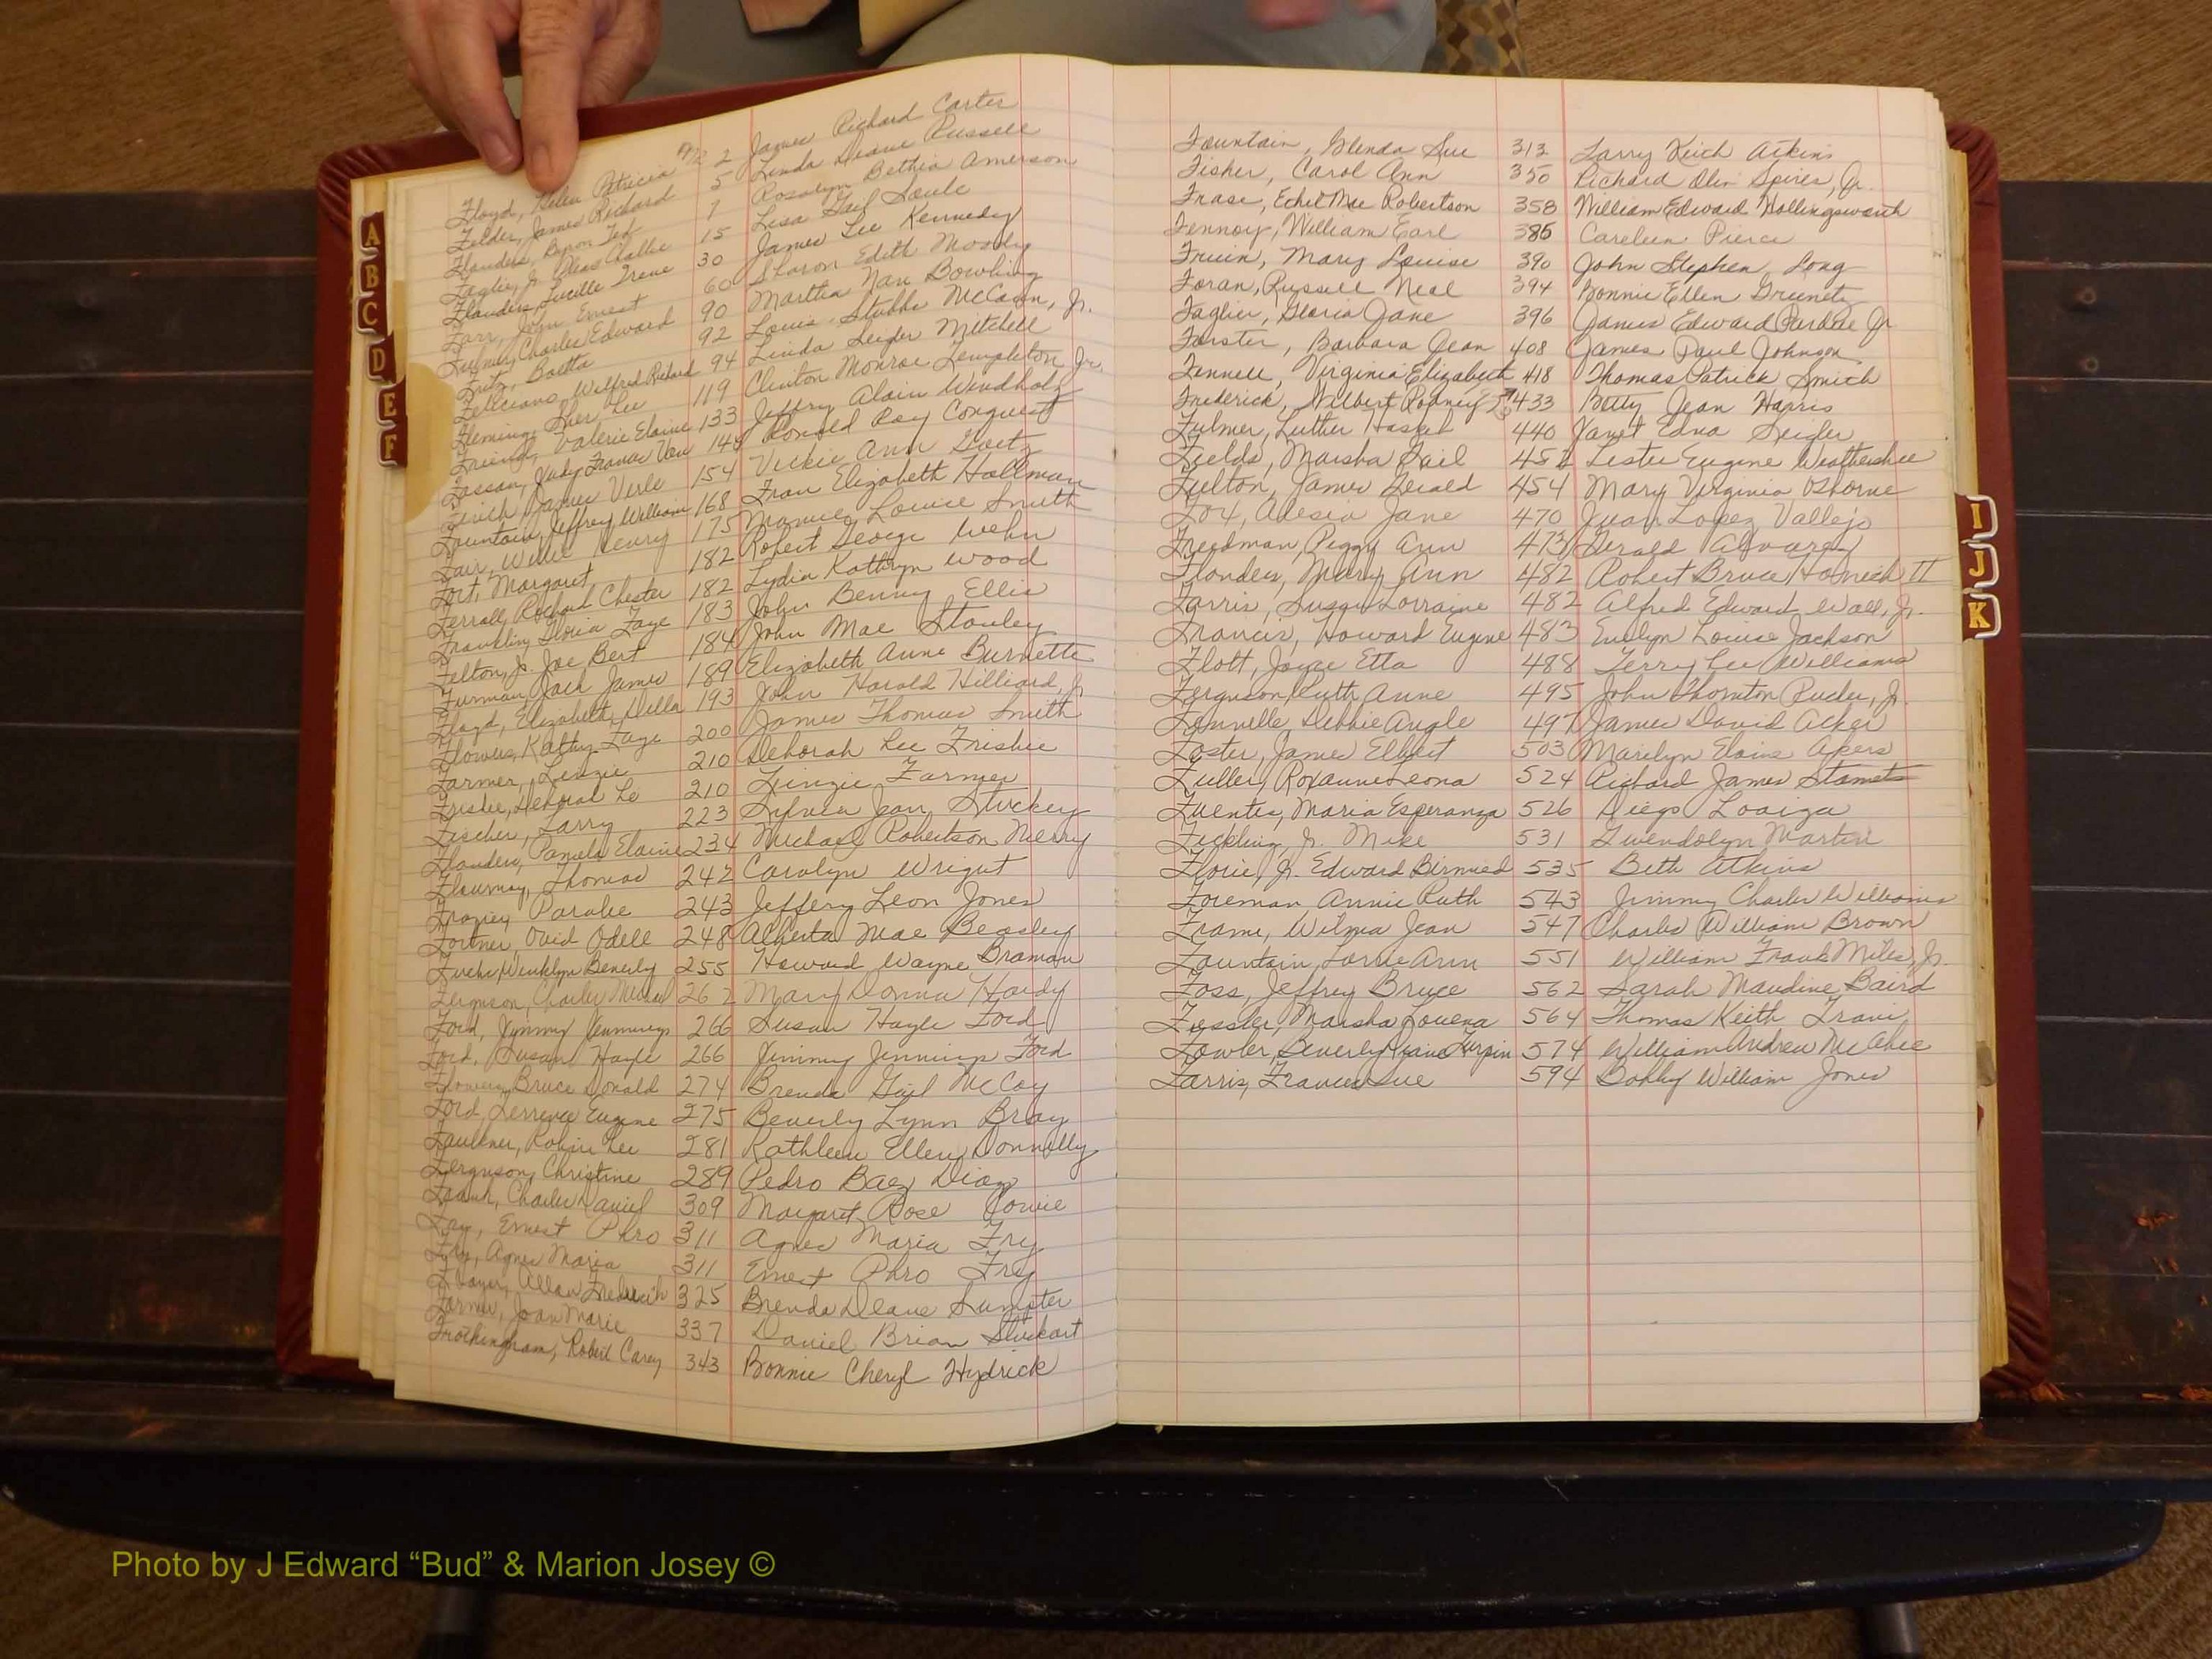 Floyd, Helen Patricia 2 James Richard Carter
Felder, James Richard 5 Linda Deane Russell
Flanders, Byron Ted 7 Rosalyn Bethia Amerson
Faglie, Jr. Pleas Challie 15 Lisa Gail Soule
Flanders, Lucille Irene 30 James Lee Kennedy
Farr, John Ernest 60 Sharon Edith Moody
Fulmer, Charles Edward 90 Martha Nan Bowling
Fritz, Boetta 92 Louis Stubbs McCann, Jr.
Feliciano, Wilfred Richard 94 Linda Seigler Mitchell
Fleming, Sher Lee 119 Clinton Monroe Templeton Jr.
Friend, Valerie Elaine 133 Jeffry Alain Windholz
Fossan, Judy France Van 148 Ronald Ray Conquest
James Verle 154 Vickie Ann Goetz
Fountain, Jeffrey William 168 Fran Elizabeth Hallman
Fair, Willie Henry 175 Mamie Louise Smith
Fort, Margaret 182 Robert George Wehn
Ferrall, Richard Chester 182 Lydia Kathryn Wood
Franklin, Gloria Faye 183 John Benny Ellis
Felton, Jr. Joe Bert 184 John Mae Stanley
Furman, Jack James 189 Elizabeth Anne Burnette
Floyd, Elizabeth Della 193 John Harold Hilliard, Jr
Flowers, Kathy Faye 200 James Thomas Smith
Farmer, Linzie 210 Deborah Lee Frisbie
Frisbie, Deborah Le 210 Linzie Farmer
Fischer, Larry 223 Sylvia Jean Stuckey
Flanders, Pamela Elaine 234 Michael Robertson Merry
Flournoy, Thomas 242 Carolyn Wright
Frazier, Paralie 243 Jeffery Leon Jones
Fortner, Ovid Odell 248 Alberta Mae Beasley
Fuchs, Wenklyn Beverly 255 Howard Wayne Braman
Ferguson, Charles Michael 262 Mary Donna Hardy
Ford, Jimmy Jennings 266 Susan Hayle Ford
Ford, Susan Hayle 266 Jimmy Jennings Ford
Flowers, Bruce Donald 274 Brenda Gail McCoy
Ford, Terrence Eugene 275 Beverly Lynn Bray
Faulkner, Robin Lee 281 Kathleen Ellen Donnelly
Ferguson, Christine 289 Pedro Baez Diaz
Frank, Charles Daniel 309 Margaret Rose Cowie
Fry, Ernest Phro 311 Agnes Maria Fry
Fry, Agnes Maria 311 Ernest Phro Fry
Allan Frederich 325 Brenda Deane Sumpter
Farmer, Joan Marie 337 Daniel Brian Stuckart
Frothingham, Robert Carey 343 Bonnie Cheryl Hydrick
Fountain, Glenda Sue 313 Larry Keith Atkins
Fisher, Carol Ann 350 Richard Olin Spires, Jr.
Frase, Ethel Mae Robertson 358 William Edward Hollingsworth
Fennoy, William Earl 385 Careleen Pierce
Fruin, Mary Louise 390 John Stephen Long
Foran, Russell Neal 394 Bonnie Ellen Greenetz
Faglier, Gloria Jane 396 James Edward Purdue Jr
Forster, Barbara Jean 408 James Paul Johnson
Fennell, Virginia Elizabeth 418 Thomas Patrick Smith
Frederick, Wilbert Rodney 433 Betty Jean Harris
Fulmer, Luther Haskel 440 Janet Edna Seigler
Fields, Marsha Gail 452 Lester Eugene Weathersbee
Fulton, James Gerald 454 Mary Virginia Osborne
Fox, Alesia Jane 470 Juan Lopez Vallejo
Freedman, Peggy Ann 473 Gerald Alvarez
Flanders, Mary Ann 482 Robert Bruce Hornick II
Farris, Susan Lorraine 482 Alfred Edward Wall, Jr.
Francis, Howard Eugene 483 Evelyn Louise Jackson
Flott, Joyce Etta 488 Terry Lee Williams
Ferguson, Ruth Anne 495 John Thornton Rucker, Jr.
Fonnelle Debbie Angle 497 James David Acker
Foster, James Elbert 503 Marilyn Elaine Apers
Fuller, Roxanne Leona 524 Richard James Stamets
Fuentes, Maria Esperanza 526 Diego Loaiza
Fickling, Jr. Mike 531 Gwendolyn Martin
Florie, Jr. Edward Birnied 535 Beth Atkins
Foreman, Annie Ruth 543 Jimmy Charles Williams
Frame, Wilma Jean 547 Charles William Brown
Fountain, Lorrie Ann 551 William Frank Miles, Jr.
Foss, Jeffrey Bruce 562 Sarah Maudine Baird
Fessler, Marsha Louena 564 Thomas Keith Travis
Fowler, Beverly Diane Turpin 574 William Andrew McAbee
Farris, Frances Sue 594 Bobby William Jones
A
B
C
D
E
F
I
J
K
Photo by J Edward “Bud” & Marion Josey ©